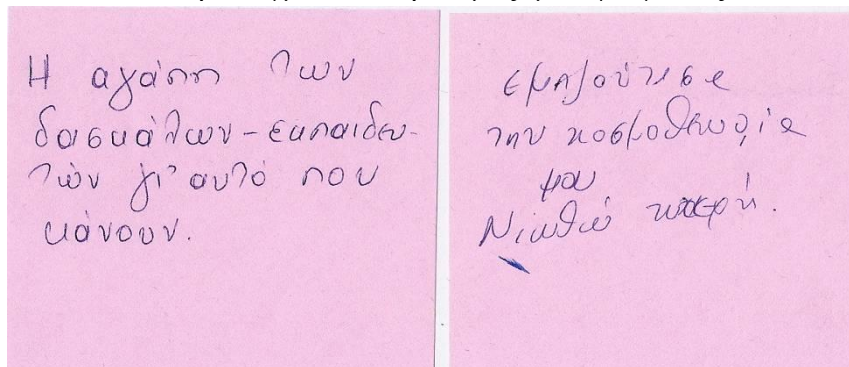 Η αγάπη των
δασκάλων - εκπαιδευ-
τών γι' αυτό που
κάνουν.
εμπλούτισε
την κοσμοθεωρία
μου
Νιώθω